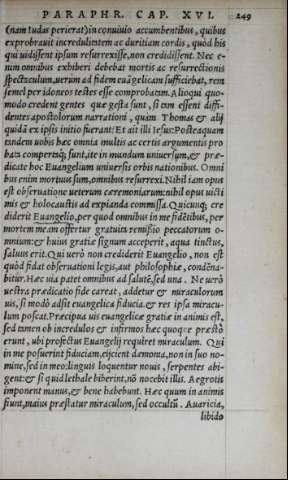 PARAPHR. CAP. XVI. 249
(nam Iudas perierat) in conuiuio accumbentibus, quibus
exprobrauit incredulitatem ac duritiam cordis, quòd his
qui uidissent ipsum resurrexisse, non credidissent. Nec e-
nim omnibus exhiberi debebat mortis ac resurrectionis
spectaculum, uerum ad fidem euāgelicam sufficiebat, rem
semel per idoneos testes esse comprobatam. Alioqui quo-
modo credent gentes quæ gesta sunt, si tam essent diffi-
dentes apostolorum narrationi, quam Thomas & alij
quidā ex ipsis initio fuerant? Et ait illi Iesus: Posteaquam
tandem uobis hæc omnia multis ac certis argumentis pro
bata compertaq́;, sunt, ite in mundum uniuersum, & præ-
dicate hoc Euangelium uniuersis orbis nationibus. Omni
bus enim mortuus sum, omnibus resurrexi. Nihil iam opus
est obseruatione ueterum cæremoniarum: nihil opus uicti
mis & holocaustis ad expianda commissa. Quicunq; cre
diderit Euangelio, per quod omnibus in me fidētibus, per
mortem meam offertur gratuita remissio peccatorum o-
mnium: & huius gratiæ signum acceperit, aqua tinctus,
saluus erit. Qui uerò non crediderit Euangelio, non est
quòd fidat obseruationi legis, aut philosophiæ, condēna-
bitur. Hæc uia patet omnibus ad salutē, sed una. Ne uerò
uestra prædicatio fide careat, addetur & miraculorum
uis, si modò adsit euangelica fiducia, & res ipsa miracu-
lum poscat. Præcipua uis euangelicæ gratiæ in animis est,
sed tamen ob incredulos & infirmos hæc quoque præstò
erunt, ubi profectus Euangelij requiret miraculum. Qui
in me posuerint fiduciam, eijcient dæmonia, non in suo no-
mine, sed in meo: linguis loquentur nouis, serpentes abi-
gent: & si quid lethale biberint, nō nocebit illis. Aegrotis
imponent manus, & bene habebunt. Hæc quum in animis
fiunt, maius præstatur miraculum, sed occultū. Auaricia,
libido